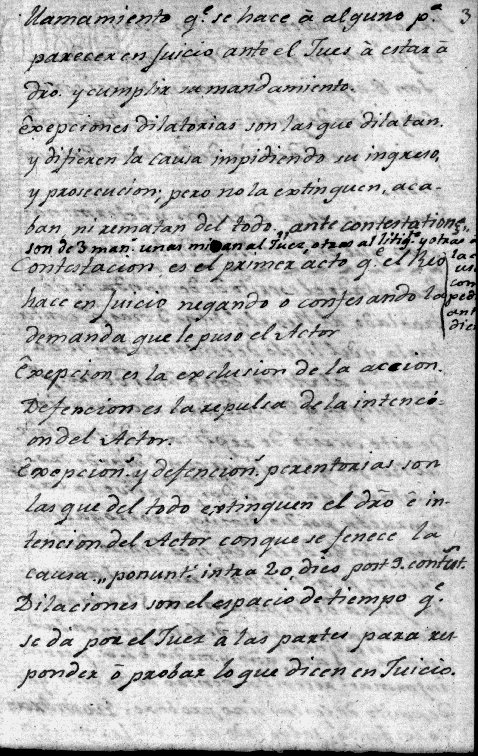 llamamiento qe. se hace â alguno pa. 3
parecer en Juicio ante el Juez â estar â
dro. y cumplir su mandamiento.
Exepciones dilatorias son las que dilatan.
y difieren la causa impidiendo su ingreso,
y prosecucion; pero no la extinguen, aca-
ban, ni rematan del todo. ante contestatione
son de 3 man.s unas miran al Juez, otras al litig.o y otras a
la c
Contestacion es el primer acto qe. el Reo
hace en Juicio negando o confesando la
demanda que le puso el Actor
Exepcion es la exclusion de la accion.
Defencion es la repulsa de la intenci-
on del Actor.
Exepcion. y defencion. perentorias son
las que del todo extinguen el dro ê in-
tencion del Actor con que se fenece la
causa. ponunt. intra 20, dies post 9. contest.
Dilaciones son el espacio de tiempo qe.
se da por el Juez â las partes para res
ponder ô probar lo que dicen en Juicio.